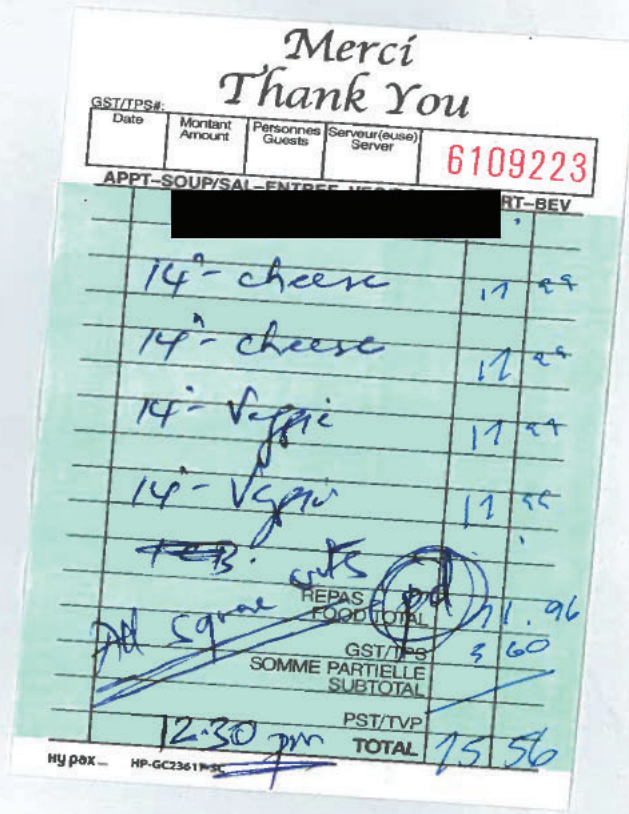 Merci
Thank You
GST/TPS#:
Date Montant Amount Personnes Guests Serveur(euse) Server 6109223
APPT-SOUP/SAL-ENTREE RT-BEV
14"- cheese 17 99
14"- cheese 17 99
14"- Veggie 17 99
14"- Veggie 17 99
cuts pd
REPAS
FOOD TOTAL 71.96
All square
GST/TPS 3 60
SOMME PARTIELLE
SUBTOTAL
PST/TVP
12:30 pm TOTAL 75 56
Hypax HP-GC2361